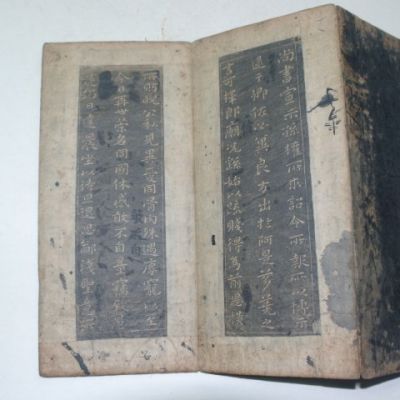 尚書宣示孫權所求詔令所報所以博示
逮于卿佐必冀良方出於阿是芻蕘之
言可擇郎廟況繇始以疏賤得為前恩橫
所盼睨公私見異愛同骨肉殊遇厚寵以至
今日再世榮名同國休慼敢不自量竊致愚
慮仍日達晨坐以待旦退思鄙淺聖意所